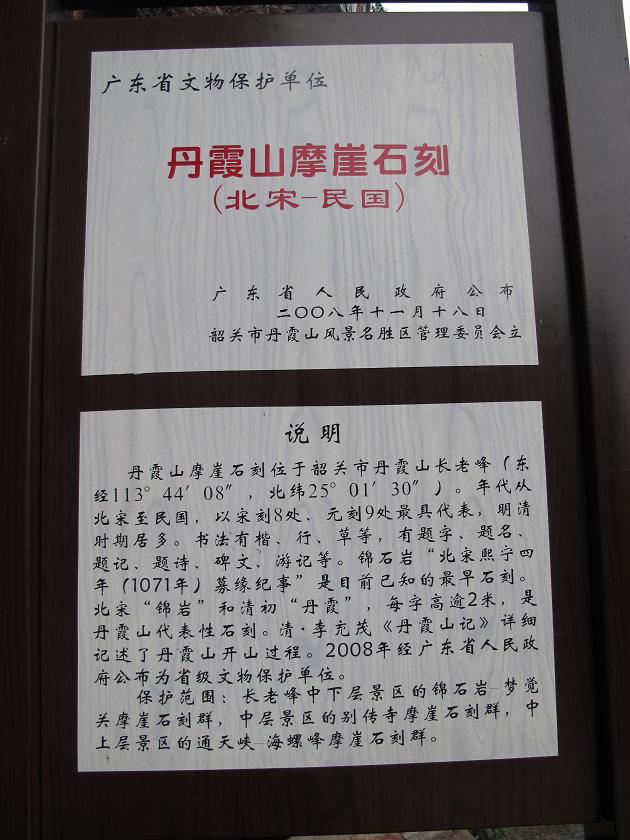 广东省文物保护单位
丹霞山摩崖石刻
(北宋-民国)
广东省人民政府公布
二〇〇八年十一月十八日
韶关市丹霞山风景名胜区管理委员会立
说明
丹霞山摩崖石刻位于韶关市丹霞山长老峰（东
经113°44′08″，北纬25°01′30″）。年代从
北宋至民国，以宋刻8处、元刻9处最具代表，明清
时期居多。书法有楷、行、草等，有题字、题名、
题记、题诗、碑文、游记等。锦石岩“北宋熙宁四
年（1071年）募缘纪事”是目前已知的最早石刻。
北宋“锦岩”和清初“丹霞”，每字高逾2米，是
丹霞山代表性石刻。清·李充茂《丹霞山记》详细
记述了丹霞山开山过程。2008年经广东省人民政
府公布为省级文物保护单位。
保护范围：长老峰中下层景区的锦石岩-梦觉
关摩崖石刻群，中层景区的别传寺摩崖石刻群，中
上层景区的通天峡-海螺峰摩崖石刻群。